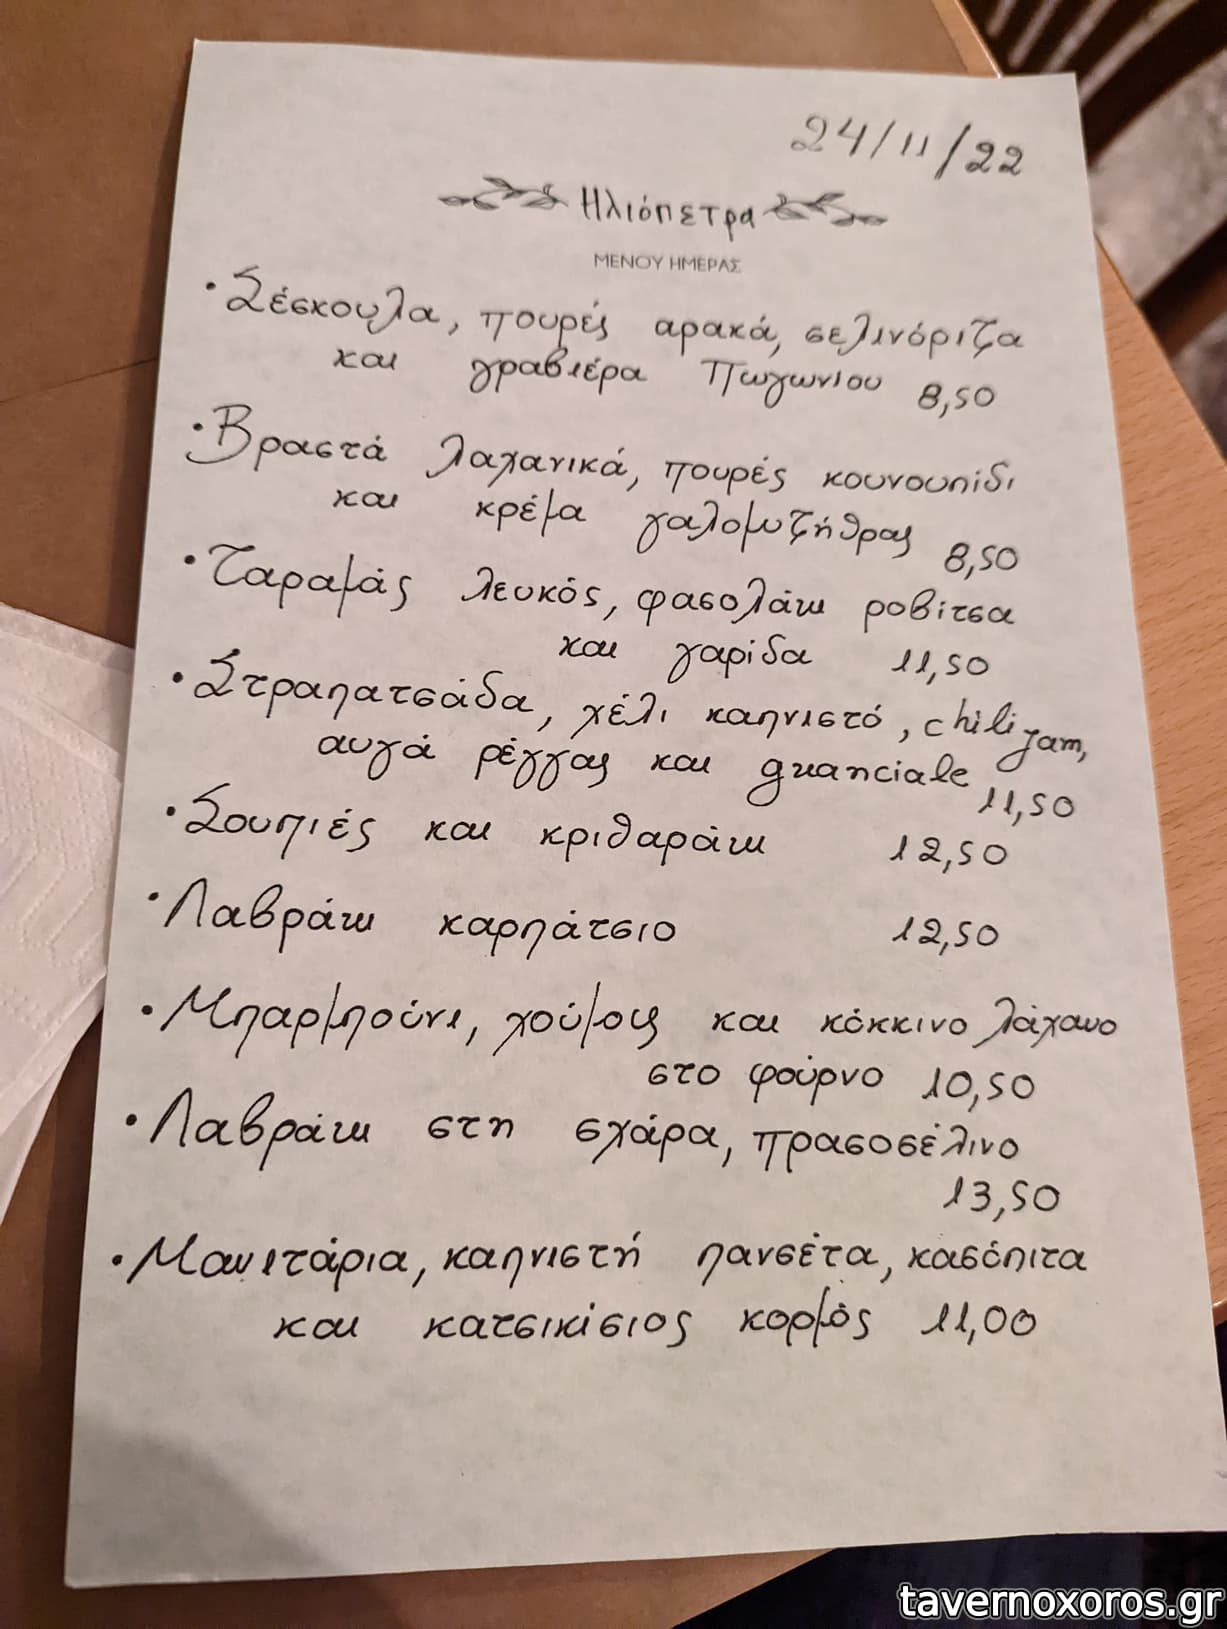 24/11/22
Ηλιόπετρα
ΜΕΝΟΥ ΗΜΕΡΑΣ
• Σέσκουλα, πουρές αρακά, σελινόριζα
και γραβιέρα Πωγωνίου 8,50
• Βραστά λαχανικά, πουρές κουνουπίδι
και κρέμα γαλομυζήθρας 8,50
• Ταραμάς λευκός, φασολάκι ροβίτσα
και γαρίδα 11,50
• Στραπατσάδα, χέλι καπνιστό, chili jam,
αυγά ρέγγας και guanciale 11,50
• Σουπιές και κριθαράκι 12,50
• Λαβράκι καρπάτσιο 12,50
• Μπαρμπούνι, χούμους και κόκκινο λάχανο
στο φούρνο 10,50
• Λαβράκι στη σχάρα, πρασοσέλινο
13,50
• Μανιτάρια, καπνιστή πανσέτα, κασόπιτα
και κατσικίσιος κορμός 11,00
tavernoxoros.gr